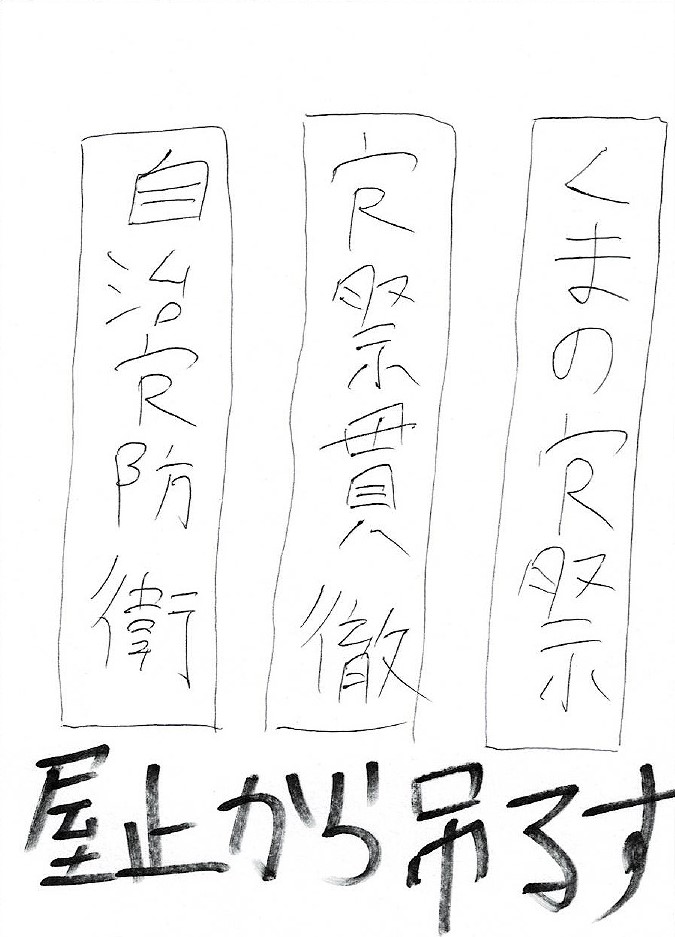 くまの寮祭
寮祭貫徹
自治寮防衛
屋止から吊るす